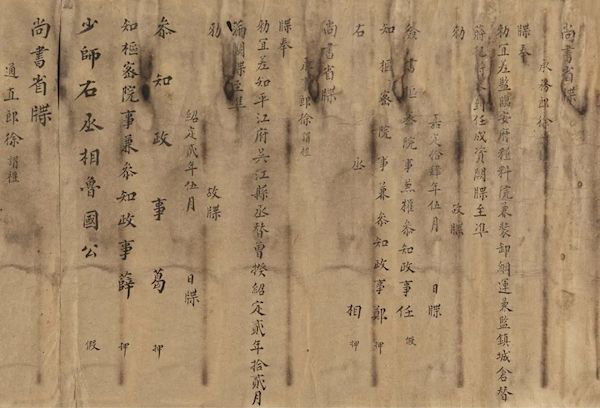 尚書省牒
承務郎徐謂禮
牒奉
勑宜差監臨安府糧料院兼裝卸綱運兼監鎮城倉替
到任成資闕牒至準
勑 故牒
嘉定拾肆年伍月 日牒
僉書樞密院事兼權參知政事任 假
知樞密院事兼參知政事鄭 押
右丞相 押
尚書省牒
承郎徐謂禮
牒奉
勑宜差知平江府吳江縣丞替曹揆紹定貳年拾貳月
滿闕牒至準
勑 故牒
紹定貳年伍月 日牒
參知政事葛 押
知樞密院事兼參知政事薛 押
少師右丞相魯國公 假
尚書省牒
通直郎徐謂禮